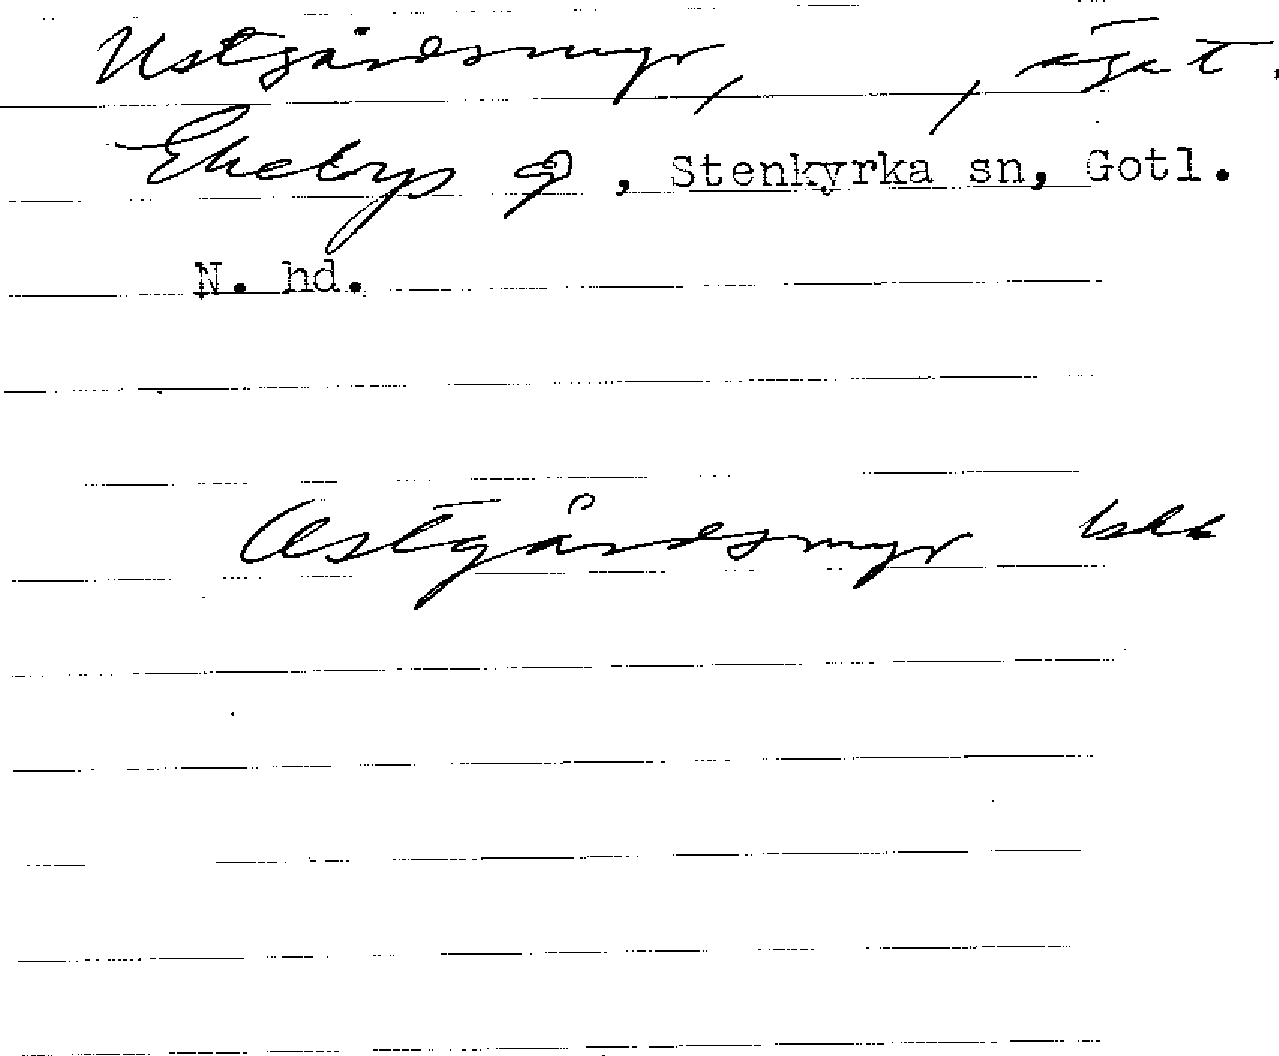 Ustgårdsmyr, , ägat.
Ekebys g, Stenkyrka sn, Gotl.
N. hd.
Ustgårdsmyr